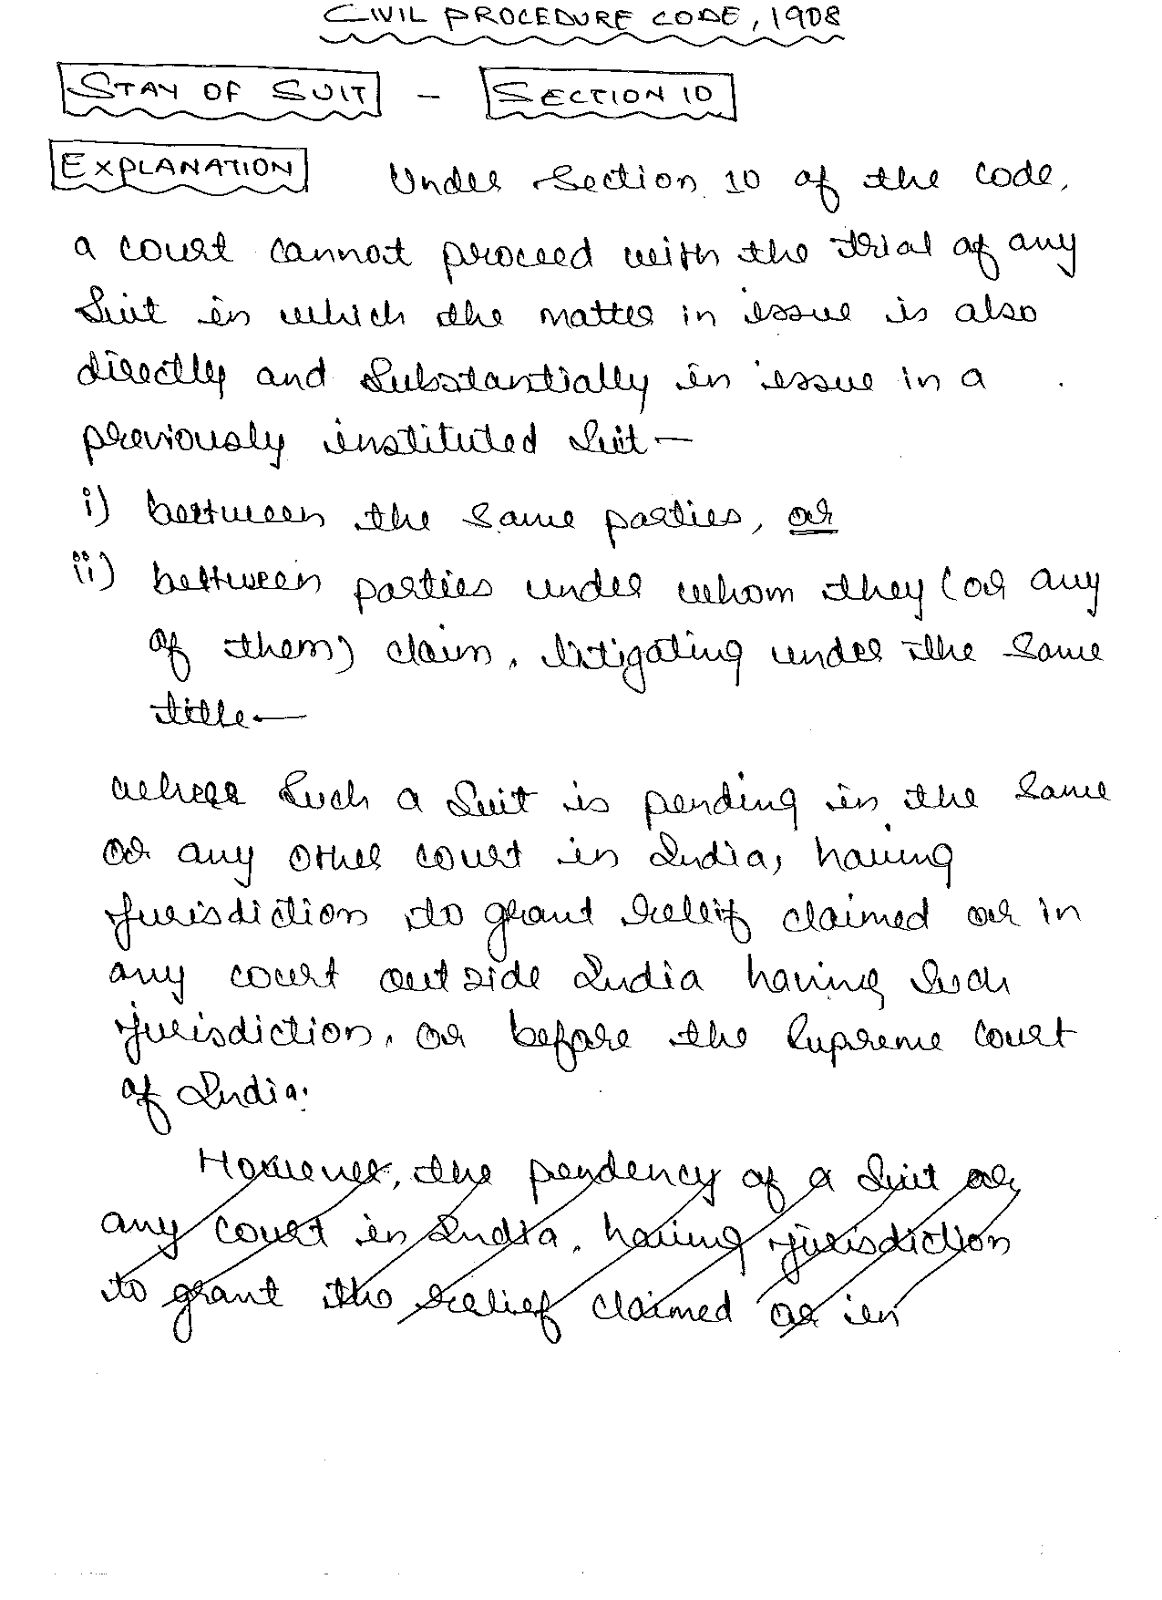 CIVIL PROCEDURE CODE, 1908
STAY OF SUIT - SECTION 10
EXPLANATION Under Section 10 of the code,
a court cannot proceed with the trial of any
Suit in which the matter in issue is also
directly and Substantially in issue in a
previously instituted Suit—
i) between the same parties, or
ii) between parties under whom they (or any
of them) claim, litigating under the same
title—
where Such a Suit is pending in the same
or any other court in India, having
jurisdiction to grant relief claimed or in
any court outside India having such
jurisdiction, or before the Supreme Court
of India.
However, the pendency of a Suit or
any court in India, having jurisdiction
to grant the relief claimed or in